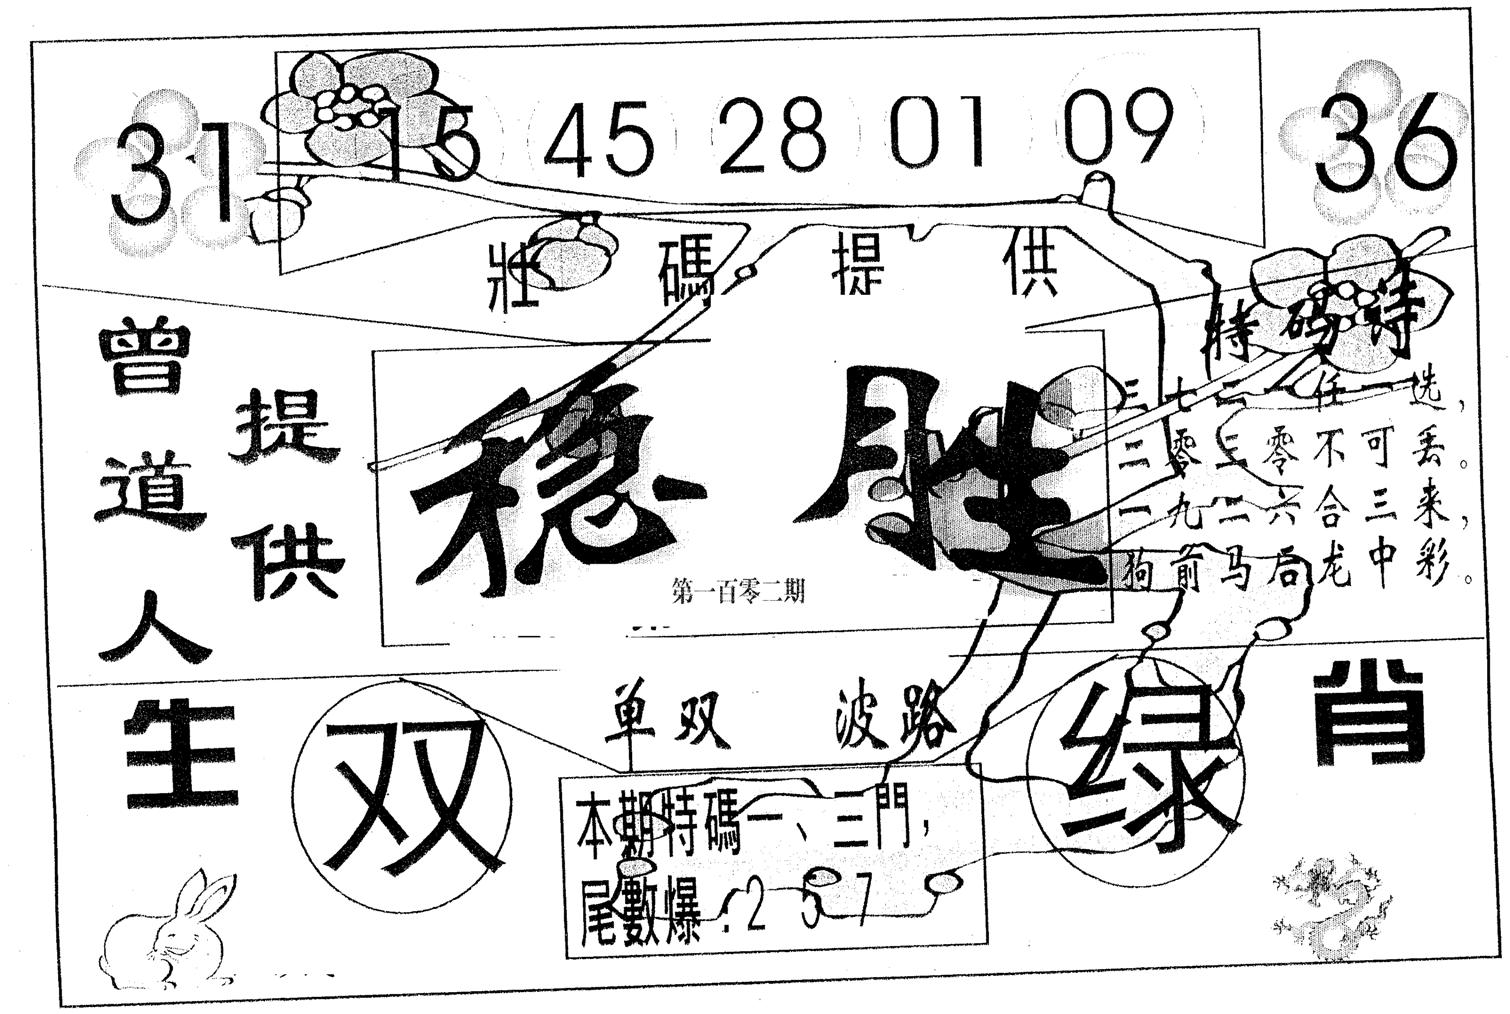 31 15 45 28 01 09 36
壯碼提供
曾道人
提供
稳胜
第一百零二期
特码诗
三七二一任一选，
二零三零不可丢。
一九二六合三来，
狗前马后龙中彩。
生肖
双
单双 波路
绿
本期特碼一、三門，
尾數爆：2 5 7